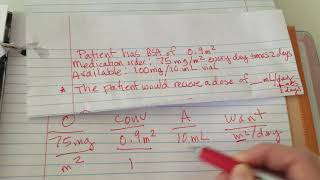 Patient has BSA of 0.9m²
Medication order: 75mg/m² every day times 2 days
Available: 100mg/10mL vial
* The patient would receive a dose of __mL/day
2 days
O Conv A Want
75mg 0.9m² 10mL m²/day
m² 1